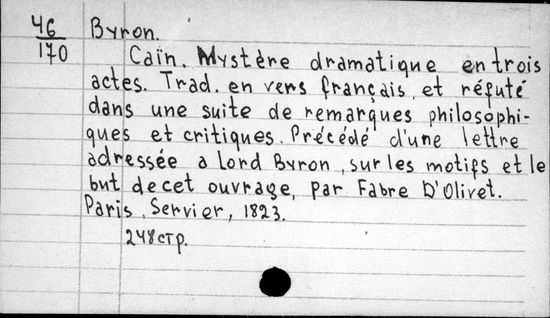 46 Byron.
170 Caïn. Mystère dramatique en trois
actes. Trad. en vers français, et réfuté
dans une suite de remarques philosophi-
ques et critiques. Précédé d'une lettre
adressée a lord Byron, sur les motifs et le
but de cet ouvrage, par Fabre D'Olivet.
Paris, Servier, 1823.
248 стр.